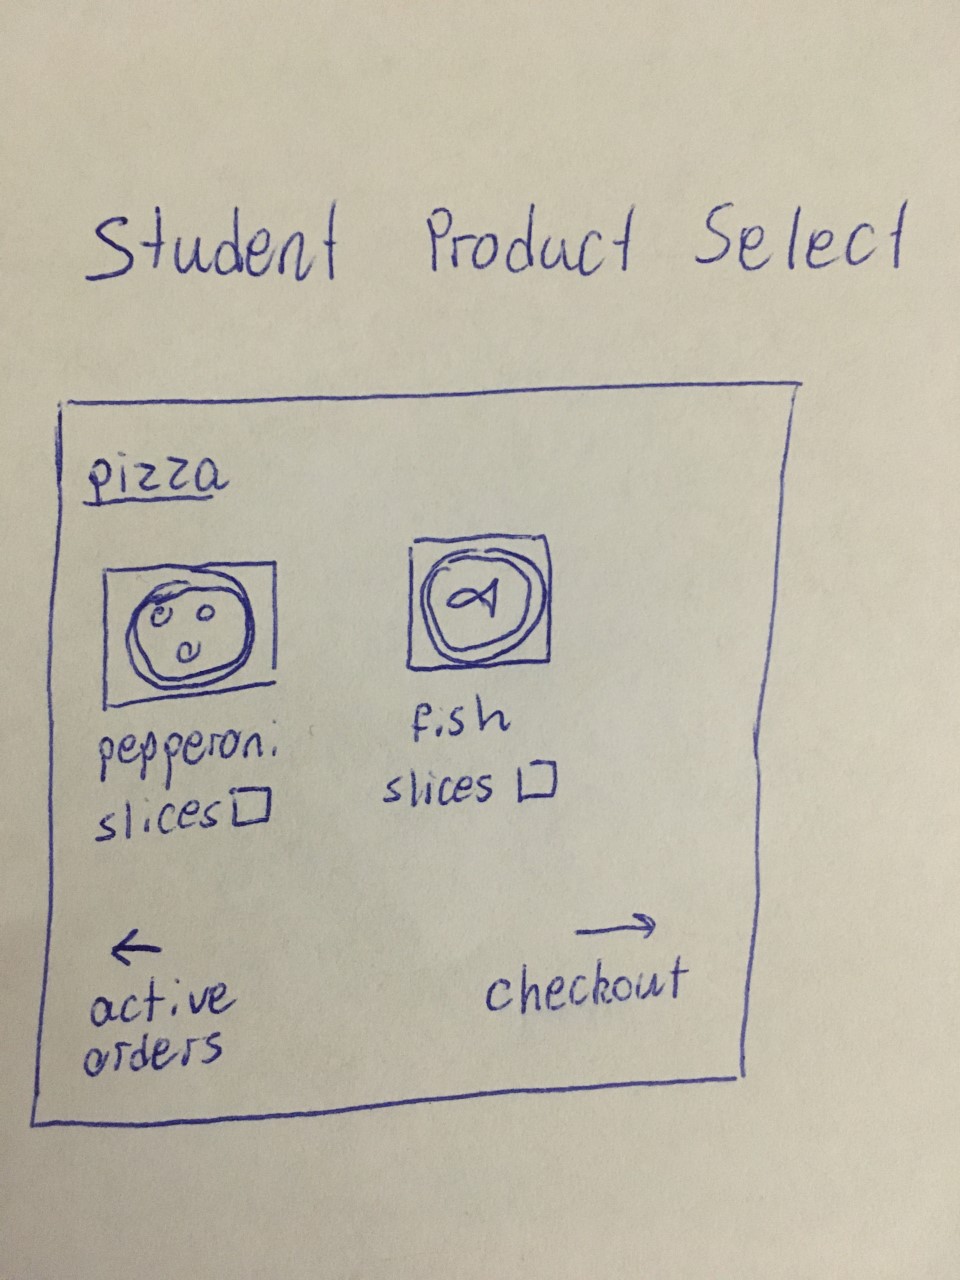 Student Product Select
pizza
pepperoni
slices
fish
slices
active
orders
checkout